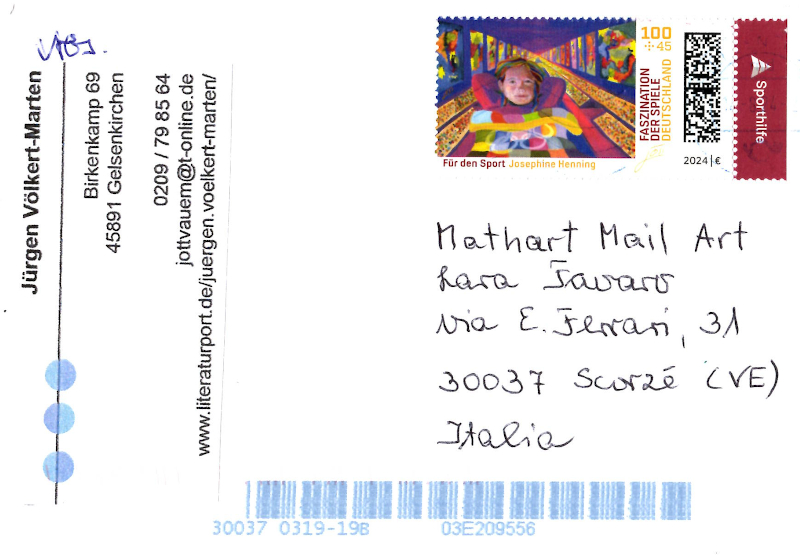 Jürgen Völkert-Marten
Birkenkamp 69
45891 Gelsenkirchen
0209 / 79 85 64
jottvauem@t-online.de
www.literaturport.de/juergen.voelkert-marten/
100
+45
FASZINATION
DER SPIELE
DEUTSCHLAND
Für den Sport Josephine Henning
2024 | €
Sporthilfe
Mathart Mail Art
Lara Favaro
Via E. Ferrari, 31
30037 Scorzé (VE)
Italia
30037 0319-19B 03E209556